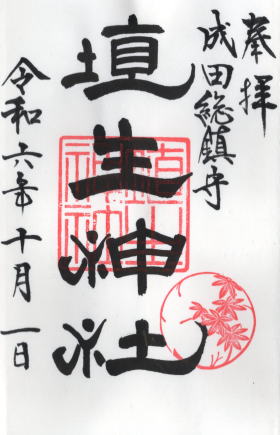 奉拝
成田総鎮守
埴生神社
令和六年十月一日